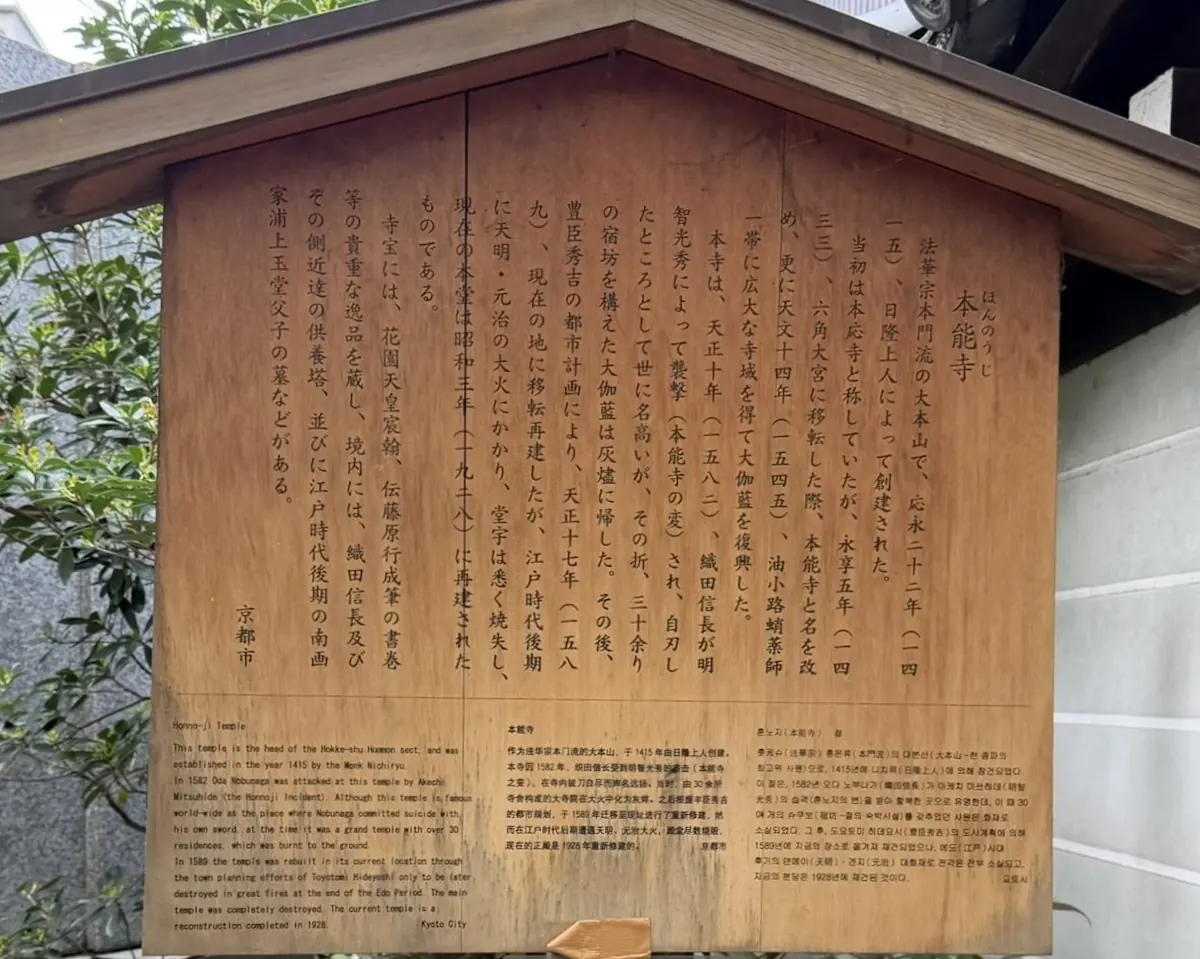 ほんのうじ
本能寺
法華宗本門流の大本山で、応永二十二年（一四
一五）、日隆上人によって創建された。
当初は本応寺と称していたが、永享五年（一四
三三）、六角大宮に移転した際、本能寺と名を改
め、更に天文十四年（一五四五）、油小路蛸薬師
一帯に広大な寺域を得て大伽藍を復興した。
本寺は、天正十年（一五八二）、織田信長が明
智光秀によって襲撃（本能寺の変）され、自刃し
たところとして世に名高いが、その折、三十余り
の宿坊を構えた大伽藍は灰燼に帰した。その後、
豊臣秀吉の都市計画により、天正十七年（一五八
九）、現在の地に移転再建したが、江戸時代後期
に天明・元治の大火にかかり、堂宇は悉く焼失し、
現在の本堂は昭和三年（一九二八）に再建された
ものである。
寺宝には、花園天皇宸翰、伝藤原行成筆の書巻
等の貴重な逸品を蔵し、境内には、織田信長及び
その側近達の供養塔、並びに江戸時代後期の南画
家浦上玉堂父子の墓などがある。
京都市
Honno-ji Temple
This temple is the head of the Hokke-shu Honmon sect, and was
established in the year 1415 by the Monk Nichiryu.
In 1582 Oda Nobunaga was attacked at this temple by Akechi
Mitsuhide (the Honnoji Incident). Although this temple is famous
world-wide as the place where Nobunaga committed suicide with
his own sword, at the time it was a grand temple with over 30
residences, which was burnt to the ground.
In 1589 the temple was rebuilt in its current location through
the town planning efforts of Toyotomi Hideyoshi only to be later
destroyed in great fires at the end of the Edo Period. The main
temple was completely destroyed. The current temple is a
reconstruction completed in 1928. Kyoto City
本能寺
作为法华宗本门流的大本山，于1415年由日隆上人创建。
本寺因1582年，织田信长受到明智光秀的袭击（本能寺
之变），在寺内拔刀自尽而声名远扬。当时，由30余所
寺舍构成的大寺院在大火中化为灰烬。之后根据丰臣秀吉
的都市规划，于1589年迁移至现址进行了重新修建，然
而在江户时代后期遭遇天明，元治大火，殿堂尽数烧毁，
现在的正殿是1928年重新修建的。 京都市
혼노지(本能寺) 절
홋케슈(法華宗) 혼몬류(本門流)의 대본산(大本山-한 종파의
최고위 사원)으로, 1415년에 니치류(日隆上人)에 의해 창건되었다.
이 절은, 1582년 오다 노부나가(織田信長)가 아케치 미쓰히데(明智
光秀)의 습격(혼노지의 변)을 받아 할복한 곳으로 유명한데, 이 때 30
여 개의 슈쿠보(宿坊-절의 숙박시설)를 갖추었던 사원은 화재로
소실되었다. 그 후, 도요토미 히데요시(豊臣秀吉)의 도시계획에 의해
1589년에 지금의 장소로 옮겨져 재건되었으나, 에도(江戸)시대
후기의 덴메이(天明)・겐지(元治) 대화재로 전각은 전부 소실되고,
지금의 본당은 1928년에 재건된 것이다. 교토시